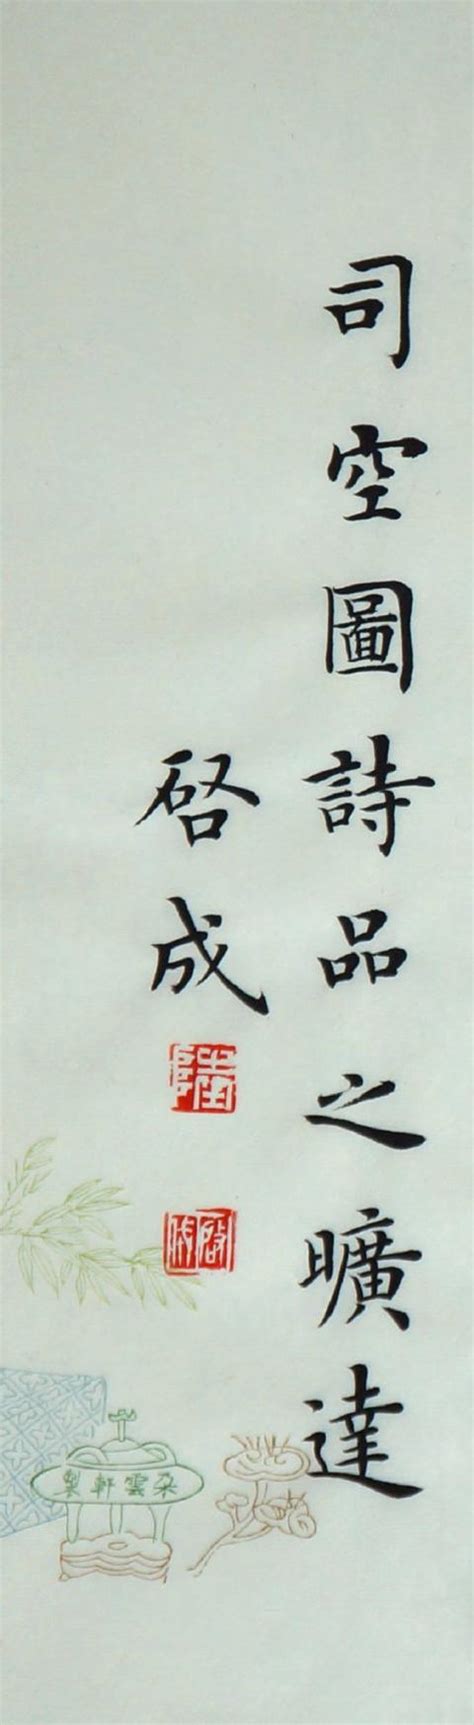 司空圖詩品之曠達
啓成
啟成
朵雲軒製